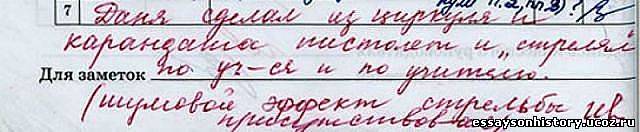 7 Даня сделал из циркуля и
карандаша пистолет и "стрелял"
Для заметок по уч-ся и по учителю.
(шумовой эффект стрельбы
присутствовал
www.essaysonhistory.ucoz.ru